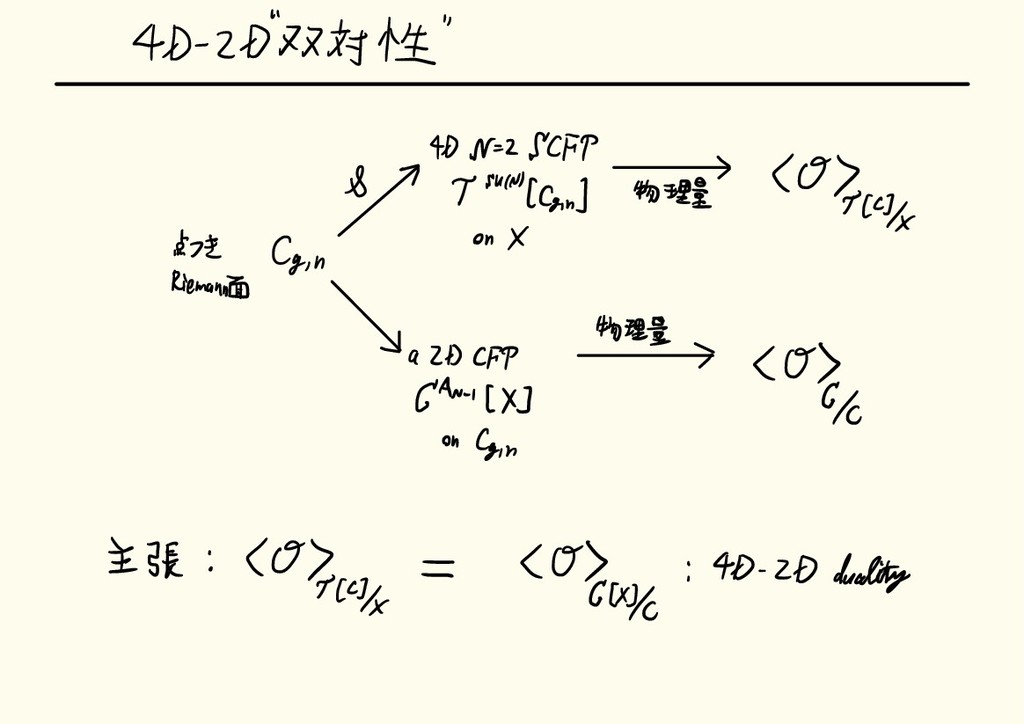 4D-2D “双対性”
4D N=2 SCFT
S
T^{SU(N)}[C_{g,n}]
on X
物理量
<O>_{T[C]/X}
点つき
Riemann面
C_{g,n}
a 2D CFT
C^{A_{N-1}}[X]
on C_{g,n}
物理量
<O>_{C/C}
主張 : <O>_{T[C]/X} = <O>_{C[X]/C} : 4D-2D duality